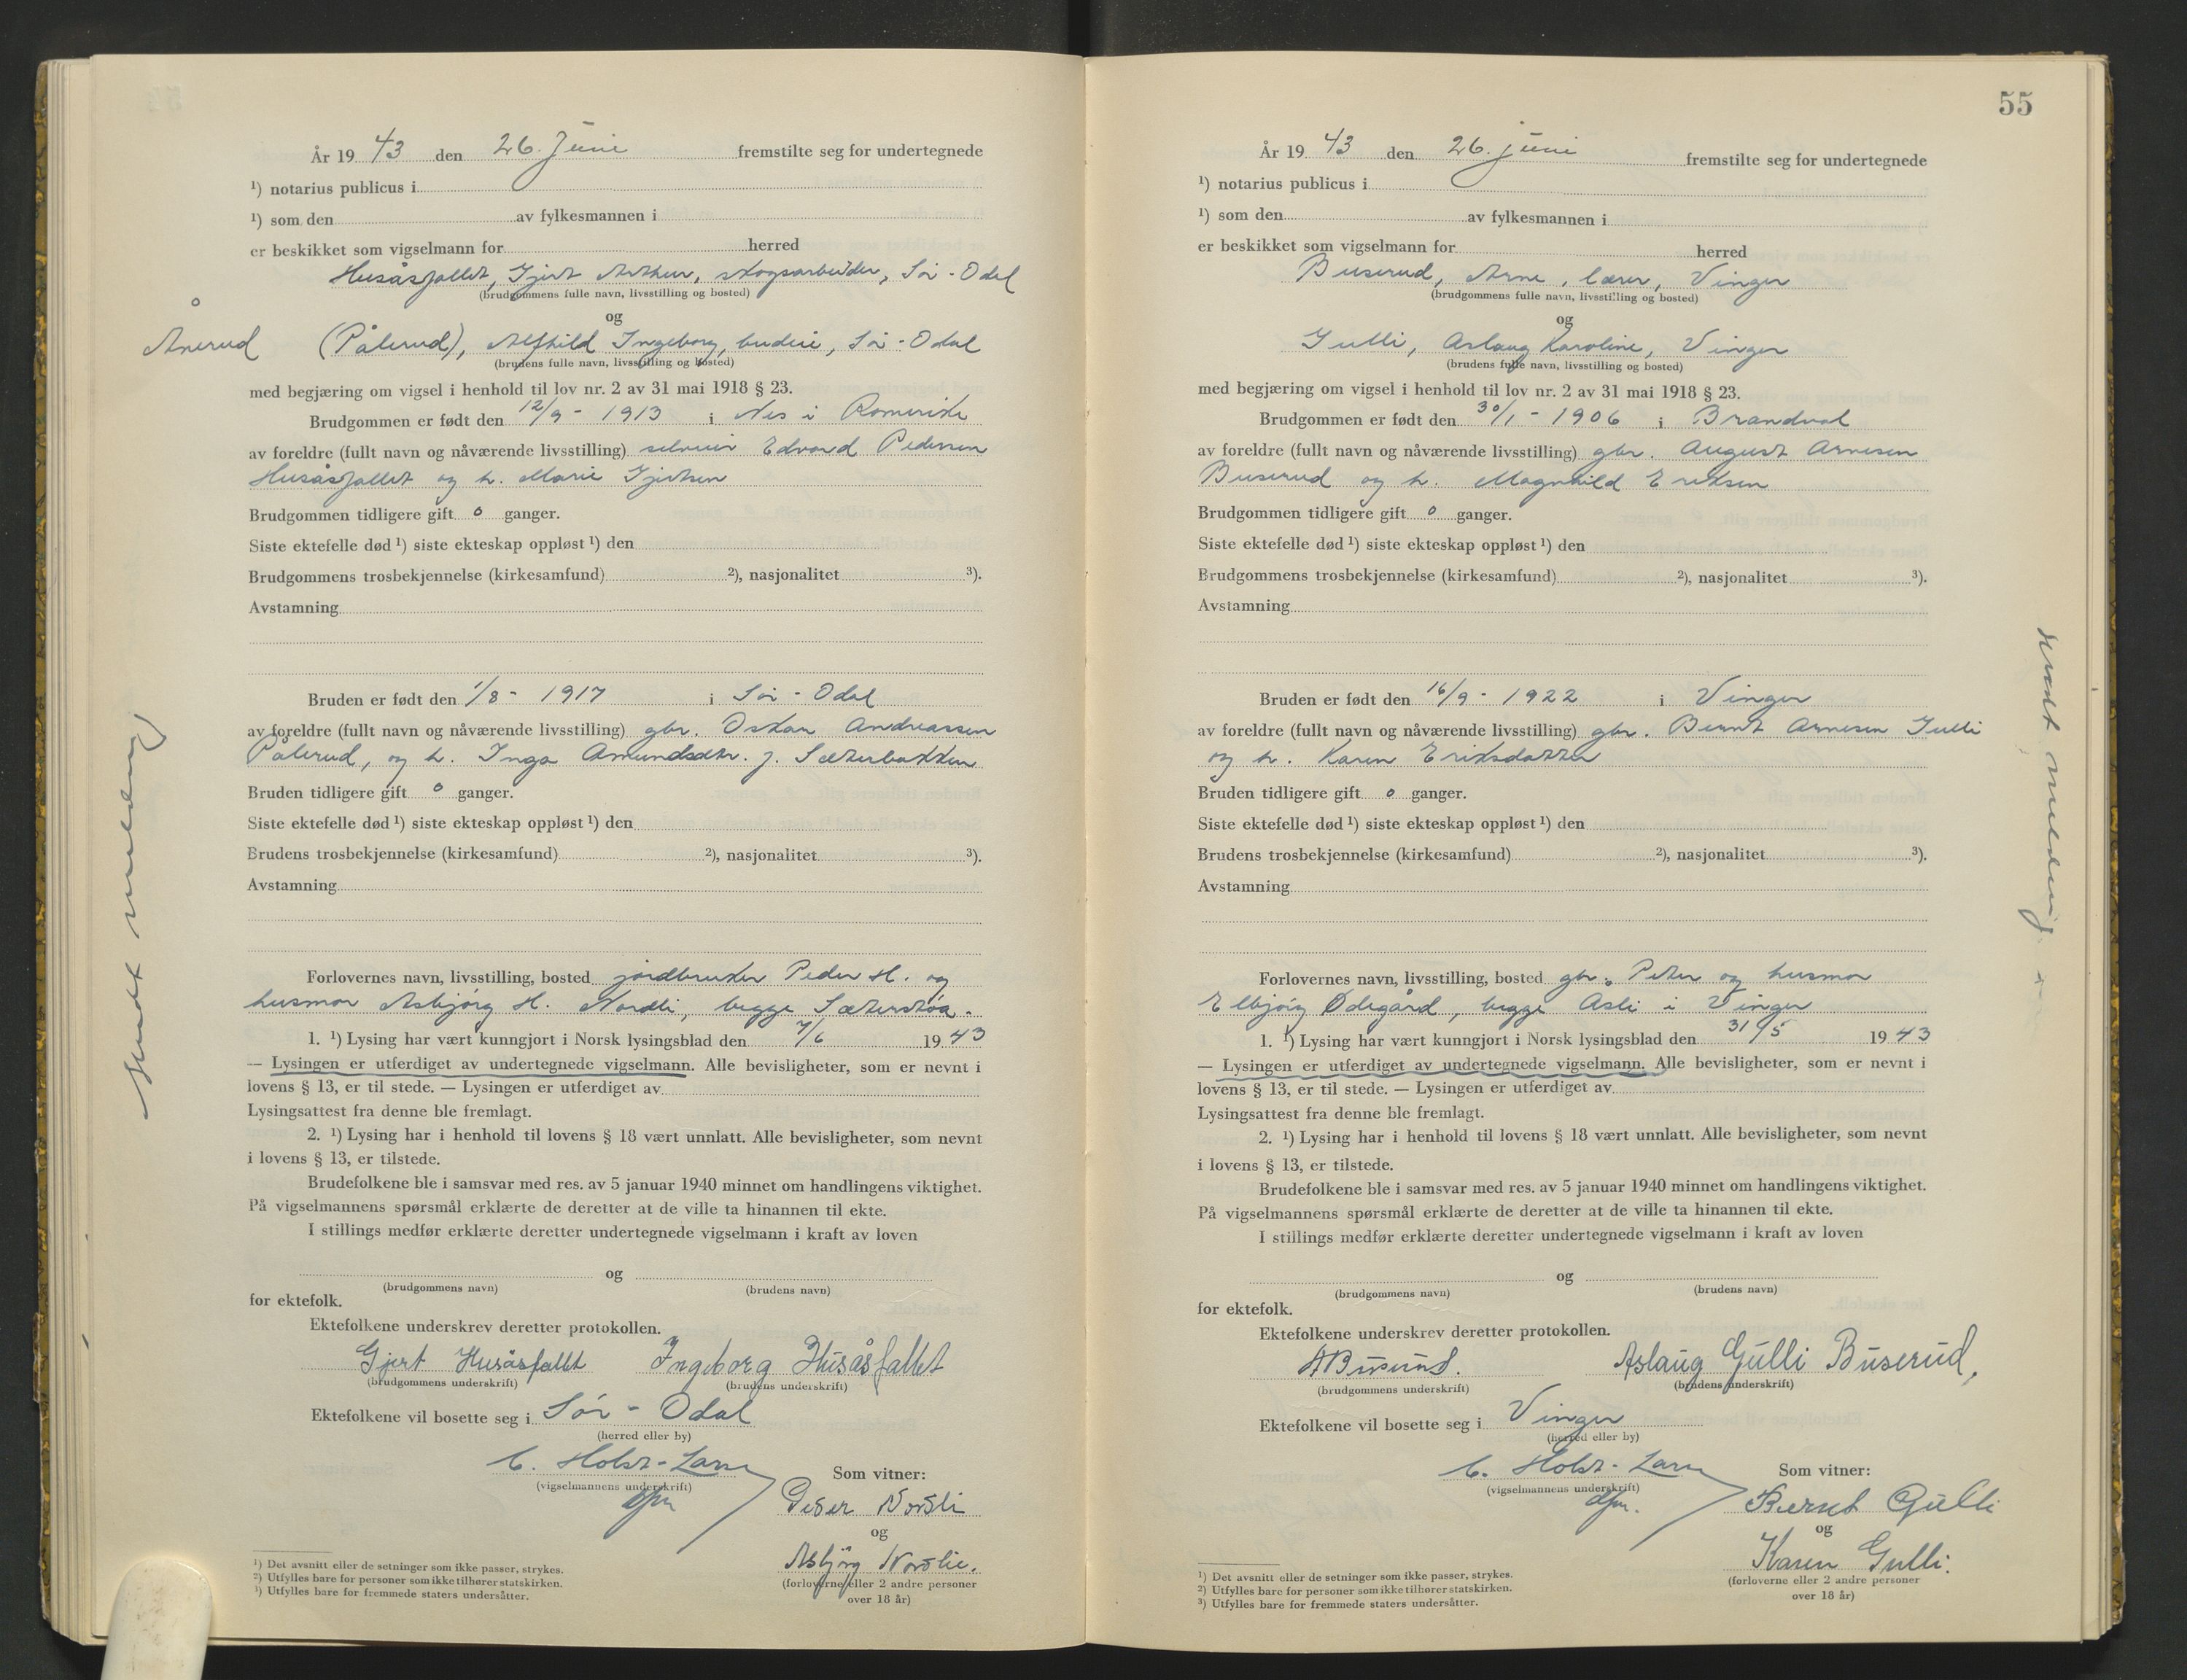 År 19 43 den 26. Juni fremstilte seg for undertegnede
¹) notarius publicus i
¹) som den av fylkesmannen i
er beskikket som vigselmann for herred
Husåsfallet, Gjert Arthur, skogsarbeider, Sør-Odal
(brudgommens fulle navn, livsstilling og bosted)
og
Ånerud (Pålerud), Alfhild Ingeborg, budeie, Sør-Odal
(brudens fulle navn, livsstilling og bosted)
med begjæring om vigsel i henhold til lov nr. 2 av 31 mai 1918 § 23.
Brudgommen er født den 12/9 - 1913 i Nes i Romerike
av foreldre (fullt navn og nåværende livsstilling) selveier Edvard Pedersen
Husåsfallet og h. Marie Gjertsen
Brudgommen tidligere gift 0 ganger.
Siste ektefelle død ¹) siste ekteskap oppløst ¹) den
Brudgommens trosbekjennelse (kirkesamfund) ²), nasjonalitet ³).
Avstamning
Bruden er født den 1/8 - 1917 i Sør-Odal
av foreldre (fullt navn og nåværende livsstilling) gbr. Oskar Andreassen
Pålerud, og h. Inga Amundsdtr. f. Sæterbakken
Bruden tidligere gift 0 ganger.
Siste ektefelle død ¹) siste ekteskap oppløst ¹) den
Brudens trosbekjennelse (kirkesamfund) ²), nasjonalitet ³).
Avstamning
Forlovernes navn, livsstilling, bosted jordbruker Peder H. og
husmor Asbjørg H. Nordli, begge Sæterstøa.
1. ¹) Lysing har vært kunngjort i Norsk lysingsblad den 7/6 19 43
— Lysingen er utferdiget av undertegnede vigselmann. Alle bevisligheter, som er nevnt i
lovens § 13, er til stede. — Lysingen er utferdiget av
Lysingsattest fra denne ble fremlagt.
2. ¹) Lysing har i henhold til lovens § 18 vært unnlatt. Alle bevisligheter, som nevnt
i lovens § 13, er tilstede.
Brudefolkene ble i samsvar med res. av 5 januar 1940 minnet om handlingens viktighet.
På vigselmannens spørsmål erklærte de deretter at de ville ta hinannen til ekte.
I stillings medfør erklærte deretter undertegnede vigselmann i kraft av loven
og
(brudgommens navn) (brudens navn)
for ektefolk.
Ektefolkene underskrev deretter protokollen.
Gjert Husåsfallet Ingeborg Husåsfallet
(brudgommens underskrift) (brudens underskrift)
Ektefolkene vil bosette seg i Sør-Odal
(herred eller by)
C. Holst-Larsen
(vigselmannens underskrift)
Som vitner:
Peder Nordli
og
Asbjörg Nordlie.
(forloverne eller 2 andre personer
over 18 år)
¹) Det avsnitt eller de setninger som ikke passer, strykes.
²) Utfylles bare for personer som ikke tilhører statskirken.
³) Utfylles bare for fremmede staters undersåtter.
Sendt melding
55
År 19 43 den 26. juni fremstilte seg for undertegnede
¹) notarius publicus i
¹) som den av fylkesmannen i
er beskikket som vigselmann for herred
Buserud, Arne, lærer, Vinger
(brudgommens fulle navn, livsstilling og bosted)
og
Gulli, Aslaug Karoline, Vinger
(brudens fulle navn, livsstilling og bosted)
med begjæring om vigsel i henhold til lov nr. 2 av 31 mai 1918 § 23.
Brudgommen er født den 30/1 - 1906 i Brandval
av foreldre (fullt navn og nåværende livsstilling) gbr. August Arnesen
Buserud og h. Magnhild Eriksen
Brudgommen tidligere gift 0 ganger.
Siste ektefelle død ¹) siste ekteskap oppløst ¹) den
Brudgommens trosbekjennelse (kirkesamfund) ²), nasjonalitet ³).
Avstamning
Bruden er født den 16/9 - 1922 i Vinger
av foreldre (fullt navn og nåværende livsstilling) gbr. Bernt Arnesen Gulli
og h. Karen Eriksdatter
Bruden tidligere gift 0 ganger.
Siste ektefelle død ¹) siste ekteskap oppløst ¹) den
Brudens trosbekjennelse (kirkesamfund) ²), nasjonalitet ³).
Avstamning
Forlovernes navn, livsstilling, bosted gbr. Peter og husmor
Elbjørg Ødegård, begge Åsli i Vinger
1. ¹) Lysing har vært kunngjort i Norsk lysingsblad den 31/5 19 43
— Lysingen er utferdiget av undertegnede vigselmann. Alle bevisligheter, som er nevnt i
lovens § 13, er til stede. — Lysingen er utferdiget av
Lysingsattest fra denne ble fremlagt.
2. ¹) Lysing har i henhold til lovens § 18 vært unnlatt. Alle bevisligheter, som nevnt
i lovens § 13, er tilstede.
Brudefolkene ble i samsvar med res. av 5 januar 1940 minnet om handlingens viktighet.
På vigselmannens spørsmål erklærte de deretter at de ville ta hinannen til ekte.
I stillings medfør erklærte deretter undertegnede vigselmann i kraft av loven
og
(brudgommens navn) (brudens navn)
for ektefolk.
Ektefolkene underskrev deretter protokollen.
A Buserud. Aslaug Gulli Buserud,
(brudgommens underskrift) (brudens underskrift)
Ektefolkene vil bosette seg i Vinger
(herred eller by)
C. Holst-Larsen
(vigselmannens underskrift)
Som vitner:
Bernt Gulli
og
Karen Gulli.
(forloverne eller 2 andre personer
over 18 år)
¹) Det avsnitt eller de setninger som ikke passer, strykes.
²) Utfylles bare for personer som ikke tilhører statskirken.
³) Utfylles bare for fremmede staters undersåtter.
Sendt melding